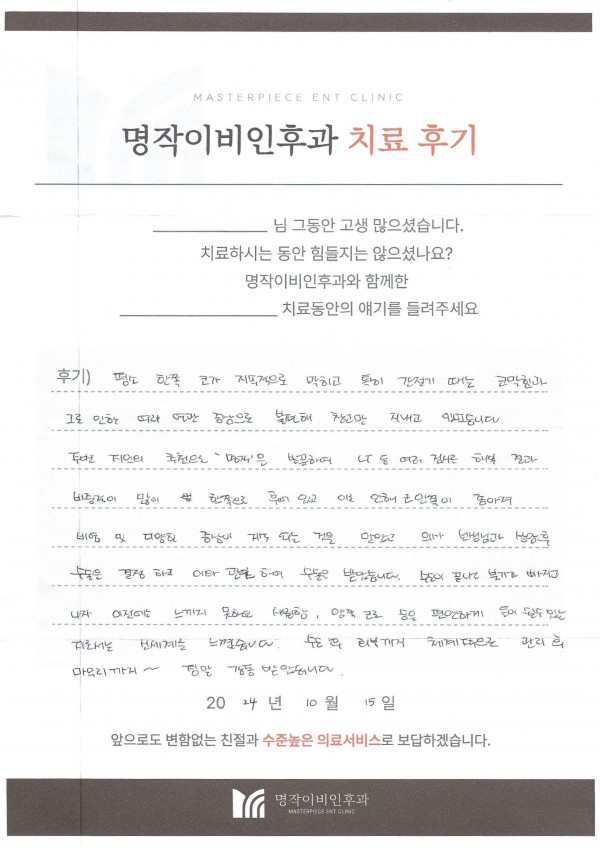 MASTERPIECE ENT CLINIC
명작이비인후과 치료 후기
님 그동안 고생 많으셨습니다.
치료하시는 동안 힘들지는 않으셨나요?
명작이비인후과와 함께한
치료동안의 얘기를 들려주세요
후기) 평소 한쪽 코가 지속적으로 막히고 특히 간절기 때는 코막힘과
그로 인한 여러 연관 증상으로 불편해 참고만 지내고 있었습니다.
주변 지인의 추천으로 '명작'을 방문하여 CT 등 여러 검사를 해본 결과
비중격이 많이 한쪽으로 휘어 있고 이로 인해 코안쪽이 좁아져
비염 및 다양한 증상이 계속 되는 것을 알았고 의사 선생님과 상담후
수술을 결정 하고 하여 수술을 받았습니다. 수술이 끝나고 붓기가 빠지고
나자 이전에는 느끼지 못하던 시원함, 양쪽 코로 숨을 편안하게 쉴수 있는
신세계를 느꼈습니다. 수술 후 회복까지 체계적으로 관리 후
마무리까지~ 정말 감동 받았습니다.
2024년 10월 15일
앞으로도 변함없는 친절과 수준높은 의료서비스로 보답하겠습니다.
명작이비인후과
MASTERPIECE ENT CLINIC